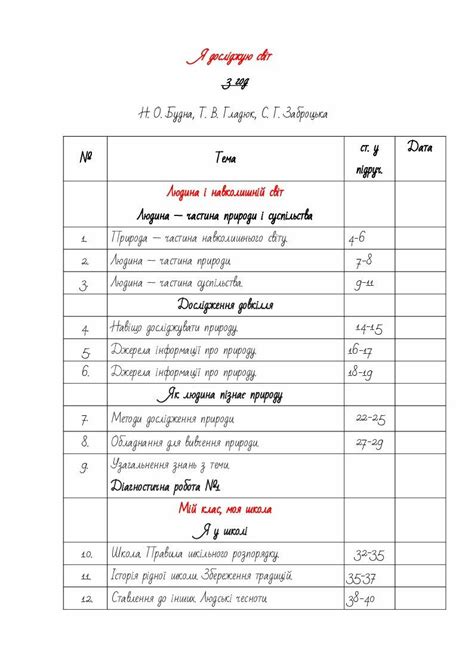 Я досліджую світ
3 год
Н. О. Будна, Т. В. Гладюк, С. Г. Заброцька
№ Тема ст. у підруч. Дата
Людина і навколишній світ
Людина – частина природи і суспільства
1. Природа – частина навколишнього світу. 4-6
2. Людина – частина природи. 7-8
3. Людина – частина суспільства. 9-11
Дослідження довкілля
4. Навіщо досліджувати природу. 14-15
5. Джерела інформації про природу. 16-17
6. Джерела інформації про природу. 18-19
Як людина пізнає природу
7. Методи дослідження природи. 22-25
8. Обладнання для вивчення природи. 27-29
9. Узагальнення знань з теми.
Діагностична робота №1
Мій клас, моя школа
Я у школі
10. Школа. Правила шкільного розпорядку. 32-35
11. Історія рідної школи. Збереження традицій. 35-37
12. Ставлення до інших. Людські чесноти. 38-40